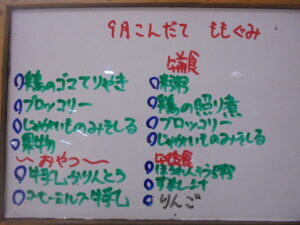 9月こんだて ももぐみ
鶏のゴマてりやき
ブロッコリー
じゃがいものみそしる
果物
〜おやつ〜
牛乳かりんとう
コーヒーミルク牛乳
午前食
粥
鶏の照り煮
ブロッコリー
じゃがいものみそしる
午後食
ほうれんそう粥
すまし汁
りんご